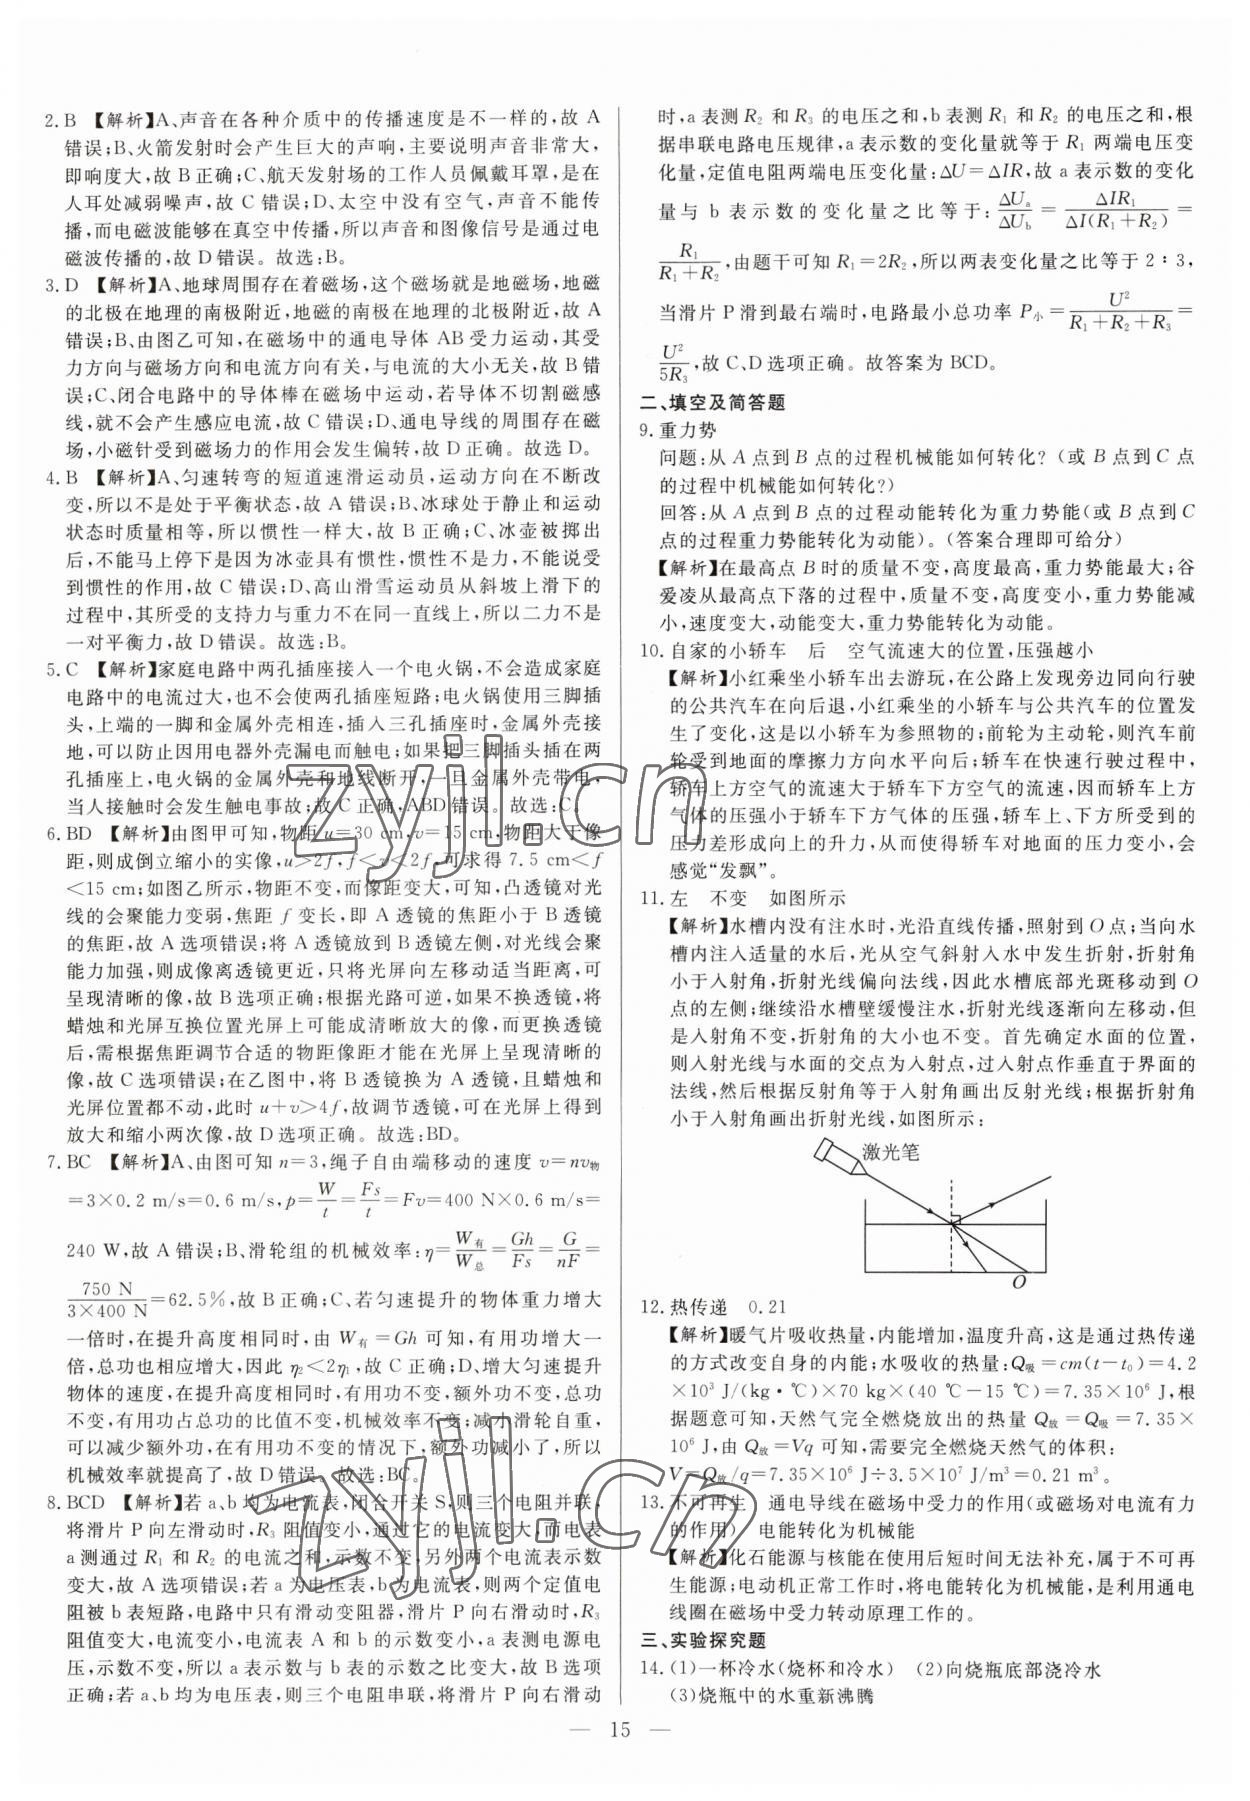 2. B 【解析】A、声音在各种介质中的传播速度是不一样的,故 A
错误;B、火箭发射时会产生巨大的声响,主要说明声音非常大,
即响度大,故 B 正确;C、航天发射场的工作人员佩戴耳罩,是在
人耳处减弱噪声,故 C 错误;D、太空中没有空气,声音不能传
播,而电磁波能够在真空中传播,所以声音和图像信号是通过电
磁波传播的,故 D 错误。故选:B。
3. D 【解析】A、地球周围存在着磁场,这个磁场就是地磁场,地磁
的北极在地理的南极附近,地磁的南极在地理的北极附近,故 A
错误;B、由图乙可知,在磁场中的通电导体 AB 受力运动,其受
力方向与磁场方向和电流方向有关,与电流的大小无关,故 B 错
误;C、闭合电路中的导体棒在磁场中运动,若导体不切割磁感
线,就不会产生感应电流,故 C 错误;D、通电导线的周围存在磁
场,小磁针受到磁场力的作用会发生偏转,故 D 正确。故选 D。
4. B 【解析】A、匀速转弯的短道速滑运动员,运动方向在不断改
变,所以不是处于平衡状态,故 A 错误;B、冰球处于静止和运动
状态时质量相等,所以惯性一样大,故 B 正确;C、冰壶被掷出
后,不能马上停下是因为冰壶具有惯性,惯性不是力,不能说受
到惯性的作用,故 C 错误;D、高山滑雪运动员从斜坡上滑下的
过程中,其所受的支持力与重力不在同一直线上,所以二力不是
一对平衡力,故 D 错误。故选:B。
5. C 【解析】家庭电路中两孔插座接入一个电火锅,不会造成家庭
电路中的电流过大,也不会使两孔插座短路;电火锅使用三脚插
头,上端的一脚和金属外壳相连,插入三孔插座时,金属外壳接
地,可以防止因用电器外壳漏电而触电;如果把三脚插头插在两
孔插座上,电火锅的金属外壳和地线断开,一旦金属外壳带电,
当人接触时会发生触电事故;故 C 正确,ABD 错误。故选:C。
6. BD 【解析】由图甲可知,物距 u=30 cm,v=15 cm,物距大于像
距,则成倒立缩小的实像,u>2f,f<v<2f,可求得 7.5 cm<f
<15 cm;如图乙所示,物距不变,而像距变大,可知,凸透镜对光
线的会聚能力变弱,焦距 f 变长,即 A 透镜的焦距小于 B 透镜
的焦距,故 A 选项错误;将 A 透镜放到 B 透镜左侧,对光线会聚
能力加强,则成像离透镜更近,只将光屏向左移动适当距离,可
呈现清晰的像,故 B 选项正确;根据光路可逆,如果不换透镜,将
蜡烛和光屏互换位置光屏上可能成清晰放大的像,而更换透镜
后,需根据焦距调节合适的物距像距才能在光屏上呈现清晰的
像,故 C 选项错误;在乙图中,将 B 透镜换为 A 透镜,且蜡烛和
光屏位置都不动,此时 u+v>4f,故调节透镜,可在光屏上得到
放大和缩小两次像,故 D 选项正确。故选:BD。
7. BC 【解析】A、由图可知 n=3,绳子自由端移动的速度 v=nv物
=3×0.2 m/s=0.6 m/s,p=W/t=Fs/t=Fv=400 N×0.6 m/s=
240 W,故 A 错误;B、滑轮组的机械效率:η=W有/W总=Gh/Fs=G/nF=
750 N/3×400 N=62.5%,故 B 正确;C、若匀速提升的物体重力增大
一倍时,在提升高度相同时,由 W有=Gh 可知,有用功增大一
倍、总功也相应增大,因此 η2<2η1,故 C 正确;D、增大匀速提升
物体的速度,在提升高度相同时,有用功不变,额外功不变,总功
不变,有用功占总功的比值不变,机械效率不变;减小滑轮自重,
可以减少额外功,在有用功不变的情况下,额外功减小了,所以
机械效率就提高了,故 D 错误。故选:BC。
8. BCD 【解析】若 a、b 均为电流表,闭合开关 S,则三个电阻并联,
将滑片 P 向左滑动时,R3 阻值变小,通过它的电流变大,而电表
a 测通过 R1 和 R2 的电流之和,示数不变,另外两个电流表示数
变大,故 A 选项错误;若 a 为电压表,b 为电流表,则两个定值电
阻被 b 表短路,电路中只有滑动变阻器,滑片 P 向右滑动时,R3
阻值变大,电流变小,电流表 A 和 b 的示数变小,a 表测电源电
压,示数不变,所以 a 表示数与 b 表的示数之比变大,故 B 选项
正确;若 a、b 均为电压表,则三个电阻串联,将滑片 P 向右滑动
时,a 表测 R2 和 R3 的电压之和,b 表测 R1 和 R2 的电压之和,根
据串联电路电压规律,a 表示数的变化量就等于 R1 两端电压变
化量,定值电阻两端电压变化量:ΔU=ΔIR,故 a 表示数的变化
量与 b 表示数的变化量之比等于:ΔUa/ΔUb=ΔIR1/ΔI(R1+R2)=
R1/R1+R2,由题干可知 R1=2R2,所以两表变化量之比等于 2∶3,
当滑片 P 滑到最右端时,电路最小总功率 P小=U²/R1+R2+R3=
U²/5R3,故 C、D 选项正确。故答案为 BCD。
二、填空及简答题
9. 重力势
问题:从 A 点到 B 点的过程机械能如何转化?(或 B 点到 C 点
的过程中机械能如何转化?)
回答:从 A 点到 B 点的过程动能转化为重力势能(或 B 点到 C
点的过程重力势能转化为动能)。(答案合理即可给分)
【解析】在最高点 B 时的质量不变,高度最高,重力势能最大;谷
爱凌从最高点下落的过程中,质量不变,高度变小,重力势能减
小,速度变大,动能变大,重力势能转化为动能。
10. 自家的小轿车 后 空气流速大的位置,压强越小
【解析】小红乘坐小轿车出去游玩,在公路上发现旁边同向行驶
的公共汽车在向后退,小红乘坐的小轿车与公共汽车的位置发
生了变化,这是以小轿车为参照物的;前轮为主动轮,则汽车前
轮受到地面的摩擦力方向水平向后;轿车在快速行驶过程中,
轿车上方空气的流速大于轿车下方空气的流速,因而轿车上方
气体的压强小于轿车下方气体的压强,轿车上、下方所受到的
压力差形成向上的升力,从而使得轿车对地面的压力变小,会
感觉“发飘”。
11. 左 不变 如图所示
【解析】水槽内没有注水时,光沿直线传播,照射到 O 点;当向水
槽内注入适量的水后,光从空气斜射入水中发生折射,折射角
小于入射角,折射光线偏向法线,因此水槽底部光斑移动到 O
点的左侧;继续沿水槽壁缓慢注水,折射光线逐渐向左移动,但
是入射角不变,折射角的大小也不变。首先确定水面的位置,
则入射光线与水面的交点为入射点,过入射点作垂直于界面的
法线,然后根据反射角等于入射角画出反射光线;根据折射角
小于入射角画出折射光线,如图所示:
激光笔
O
12. 热传递 0.21
【解析】暖气片吸收热量,内能增加,温度升高,这是通过热传递
的方式改变自身的内能;水吸收的热量:Q吸=cm(t-t0)=4.2
×10³ J/(kg·℃)×70 kg×(40 ℃-15 ℃)=7.35×10⁶ J,根
据题意可知,天然气完全燃烧放出的热量 Q放=Q吸=7.35×
10⁶ J,由 Q放=Vq 可知,需要完全燃烧天然气的体积:
V=Q放/q=7.35×10⁶ J÷3.5×10⁷ J/m³=0.21 m³。
13. 不可再生 通电导线在磁场中受力的作用(或磁场对电流有力
的作用) 电能转化为机械能
【解析】化石能源与核能在使用后短时间无法补充,属于不可再
生能源;电动机正常工作时,将电能转化为机械能,是利用通电
线圈在磁场中受力转动原理工作的。
三、实验探究题
14. (1)一杯冷水(烧杯和冷水) (2)向烧瓶底部浇冷水
(3)烧瓶中的水重新沸腾
— 15 —
zyjl.cn
zyjl.cn